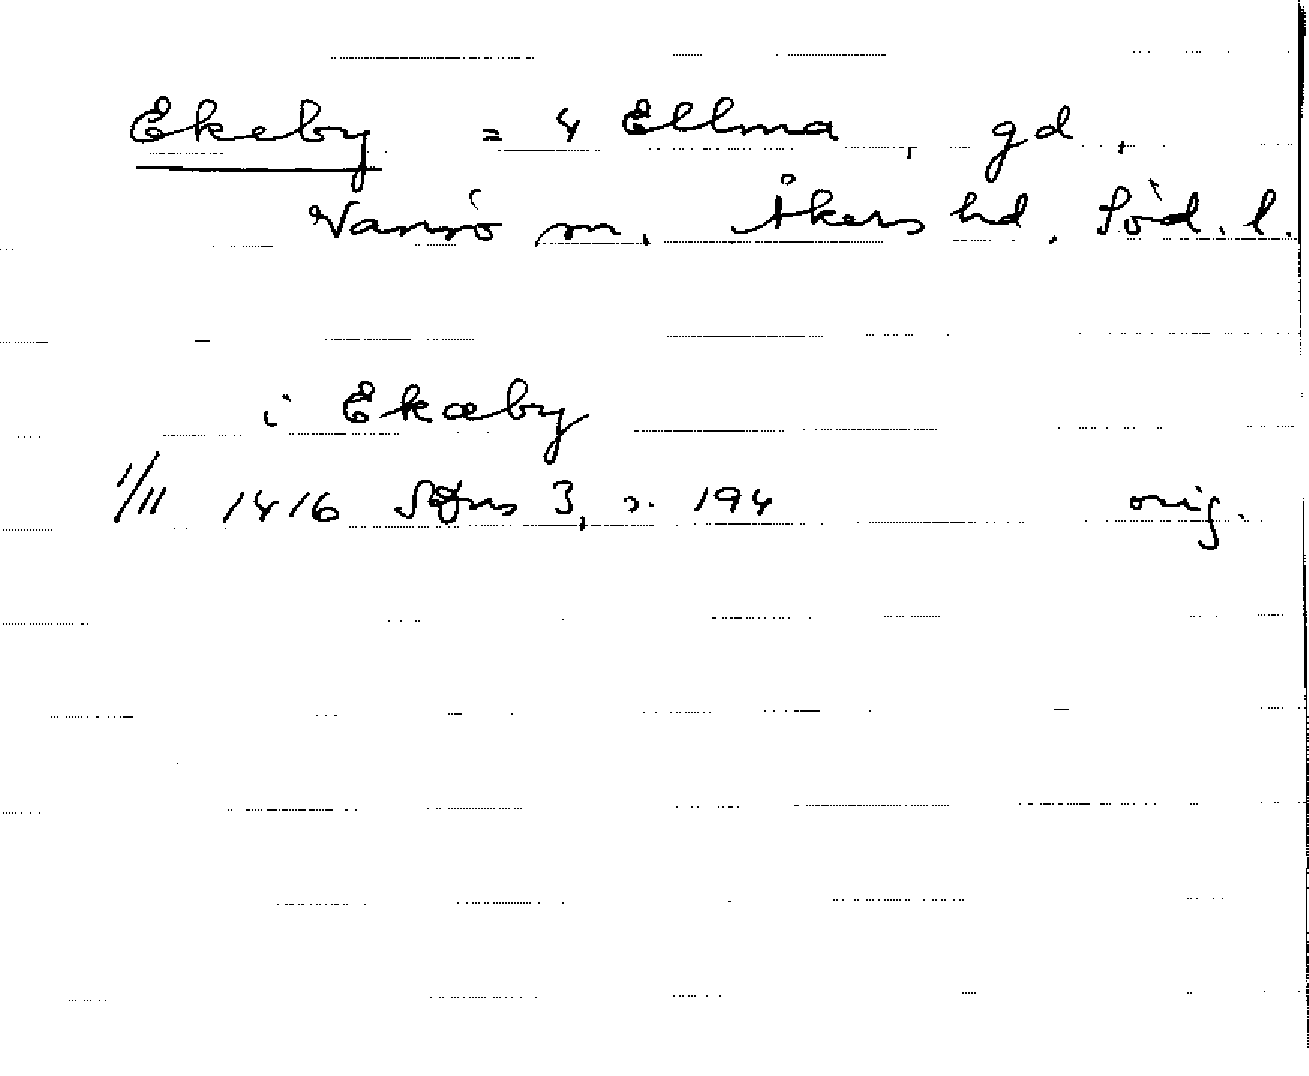 Ekeby = 4 Ellma, gd,
Vansö sn. Åkers hd. Söd. l.
i Ekæby
1/11 1416 SDns 3, s. 194 orig.